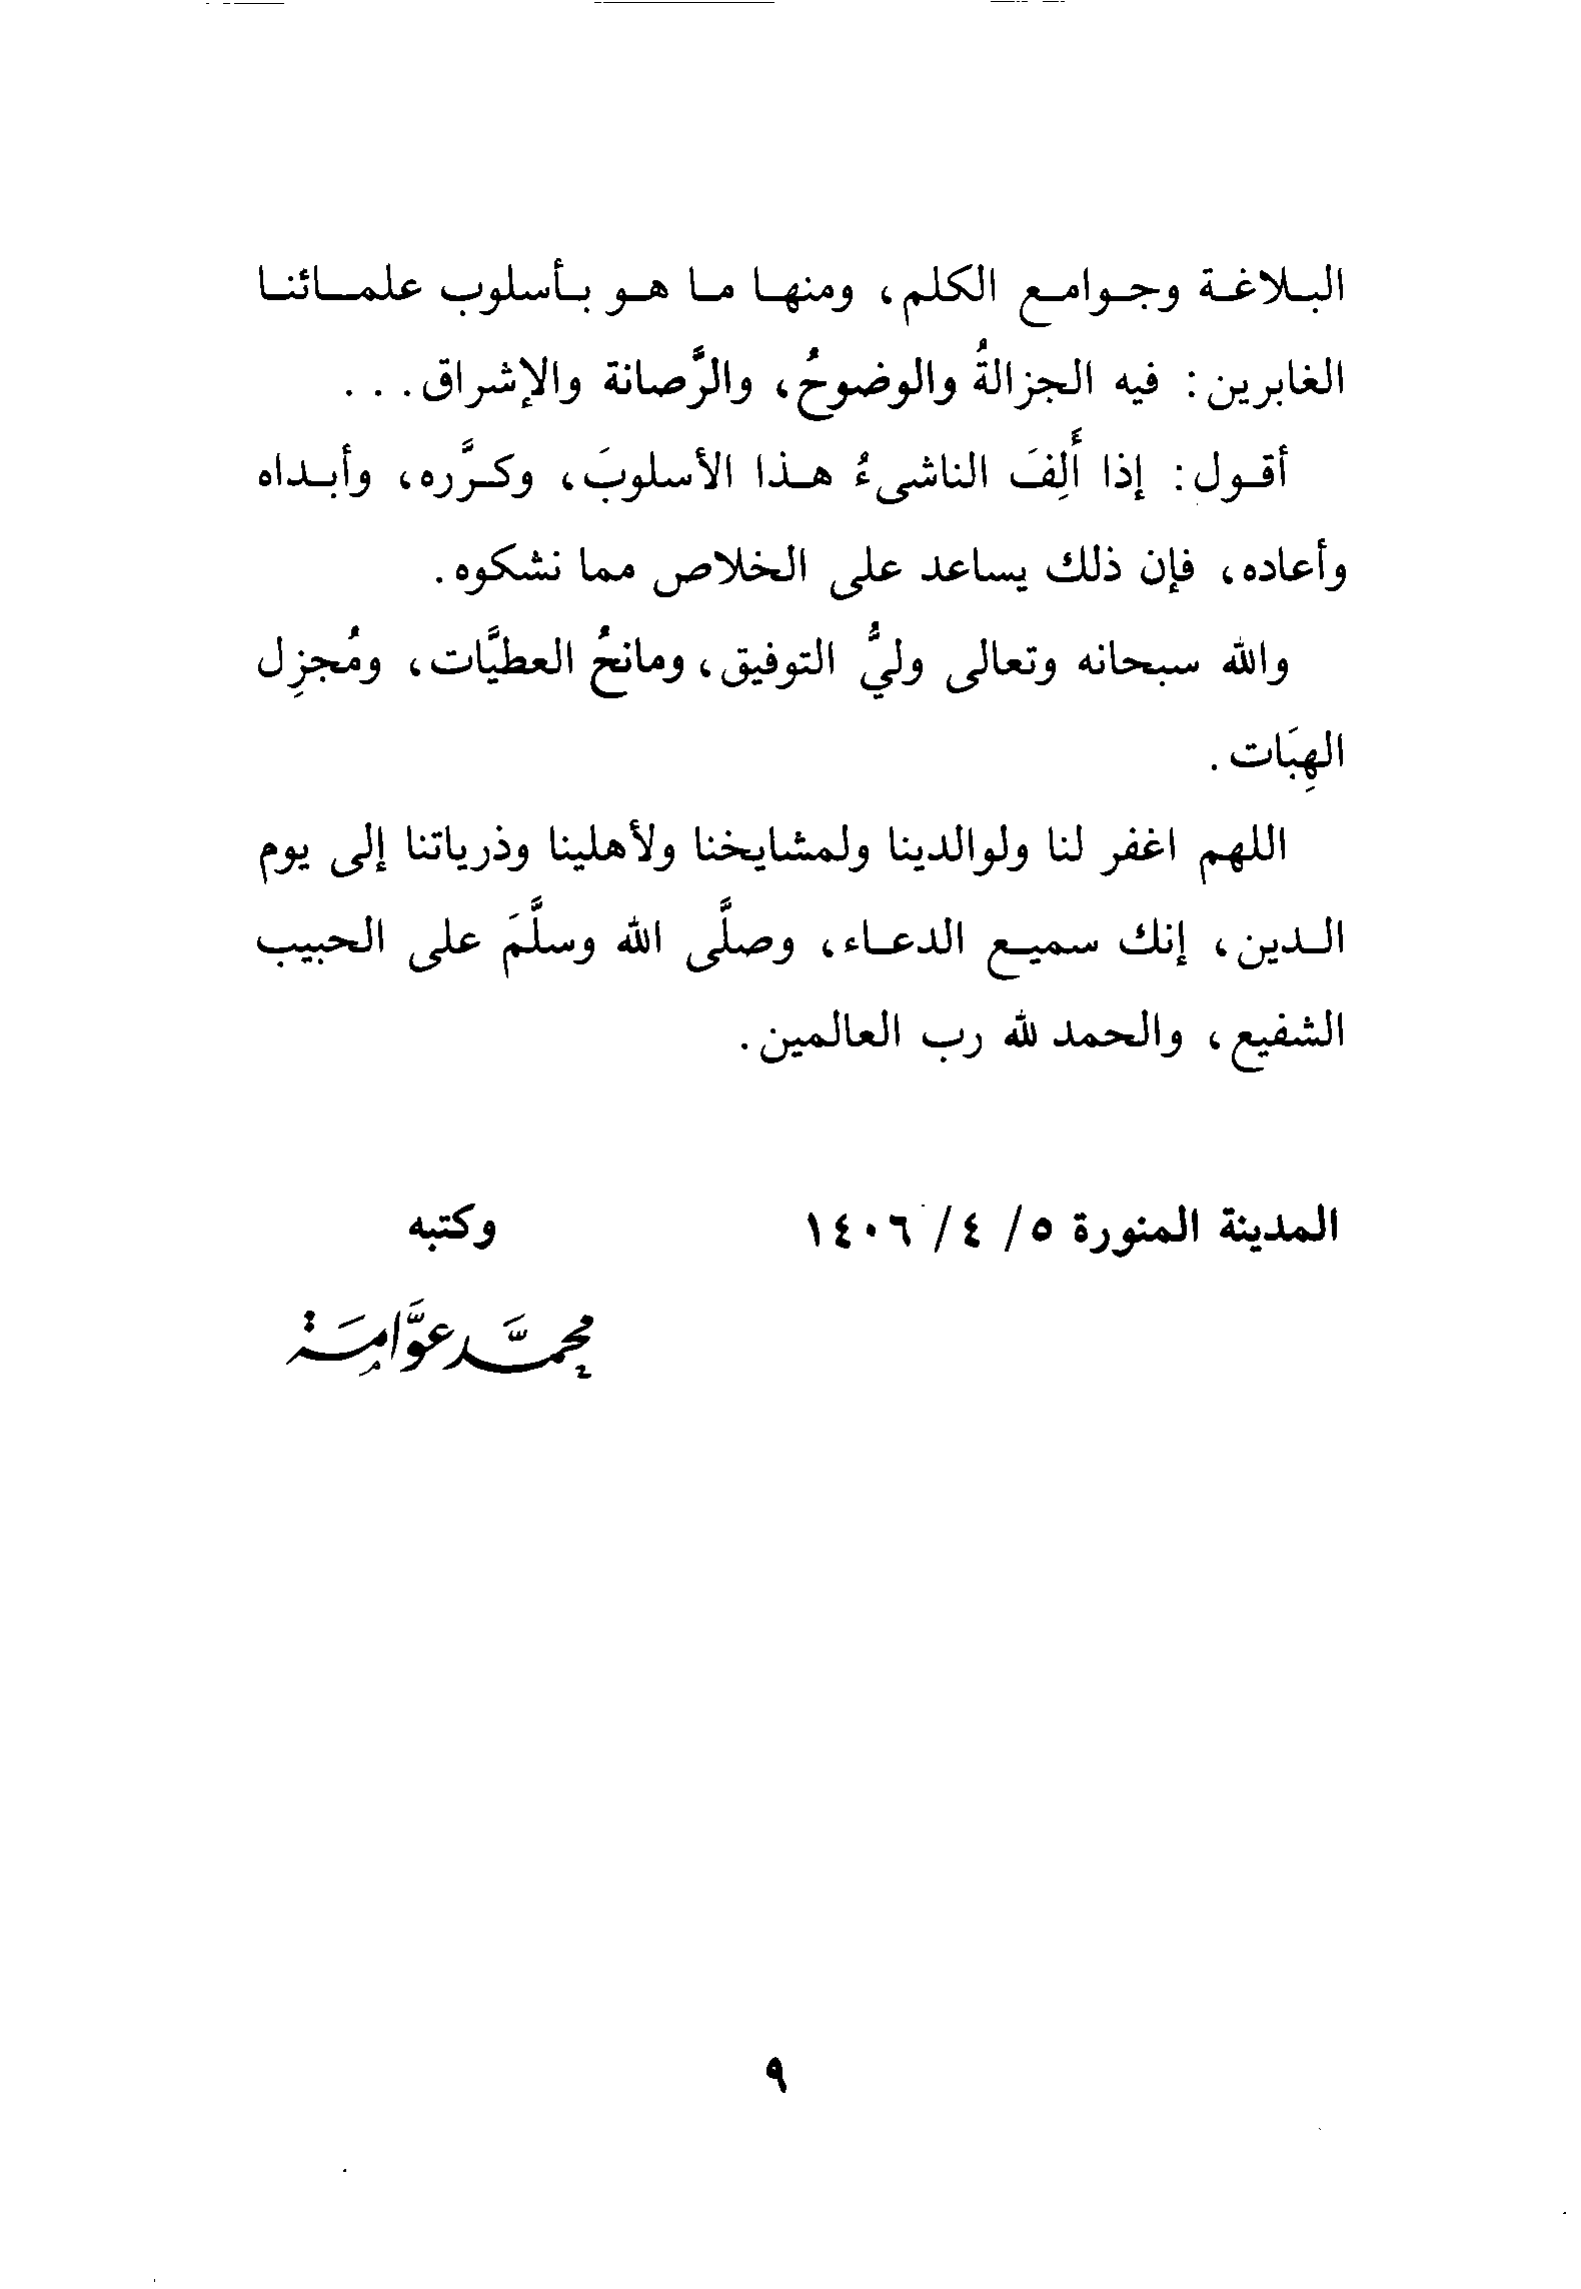 البلاغة وجوامع الكلم، ومنها ما هو بأسلوب علمائنا
الغابرين: فيه الجزالةُ والوضوحُ، والرَّصانة والإشراق...
أقول: إذا أَلِفَ الناشىءُ هذا الأسلوبَ، وكرَّره، وأبداه
وأعاده، فإن ذلك يساعد على الخلاص مما نشكوه.
والله سبحانه وتعالى وليُّ التوفيق، ومانحُ العطيَّات، ومُجزِل
الهِبَات.
اللهم اغفر لنا ولوالدينا ولمشايخنا ولأهلينا وذرياتنا إلى يوم
الدين، إنك سميع الدعاء، وصلَّى الله وسلَّمَ على الحبيب
الشفيع، والحمد لله رب العالمين.
المدينة المنورة ٥/ ٤/ ١٤٠٦ وكتبه
محمَّد عوَّامَة
٩